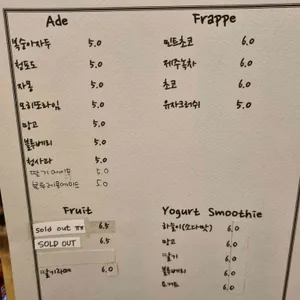 Ade
복숭아자두 5.0
청포도 5.0
자몽 5.0
모히또라임 5.0
망고 5.0
블루베리 5.0
청사과 5.0
딸기에이드 5.0
5.0
Frappe
민트초코 6.0
제주녹차 6.0
초코 6.0
유자크러쉬 5.0
Fruit
sold out ㅠㅠ 6.5
SOLD OUT 6.5
딸기라떼 6.0
Yogurt Smoothie
하늘이(소다맛) 6.0
망고 6.0
딸기 6.0
블루베리 6.0
요거트 6.0